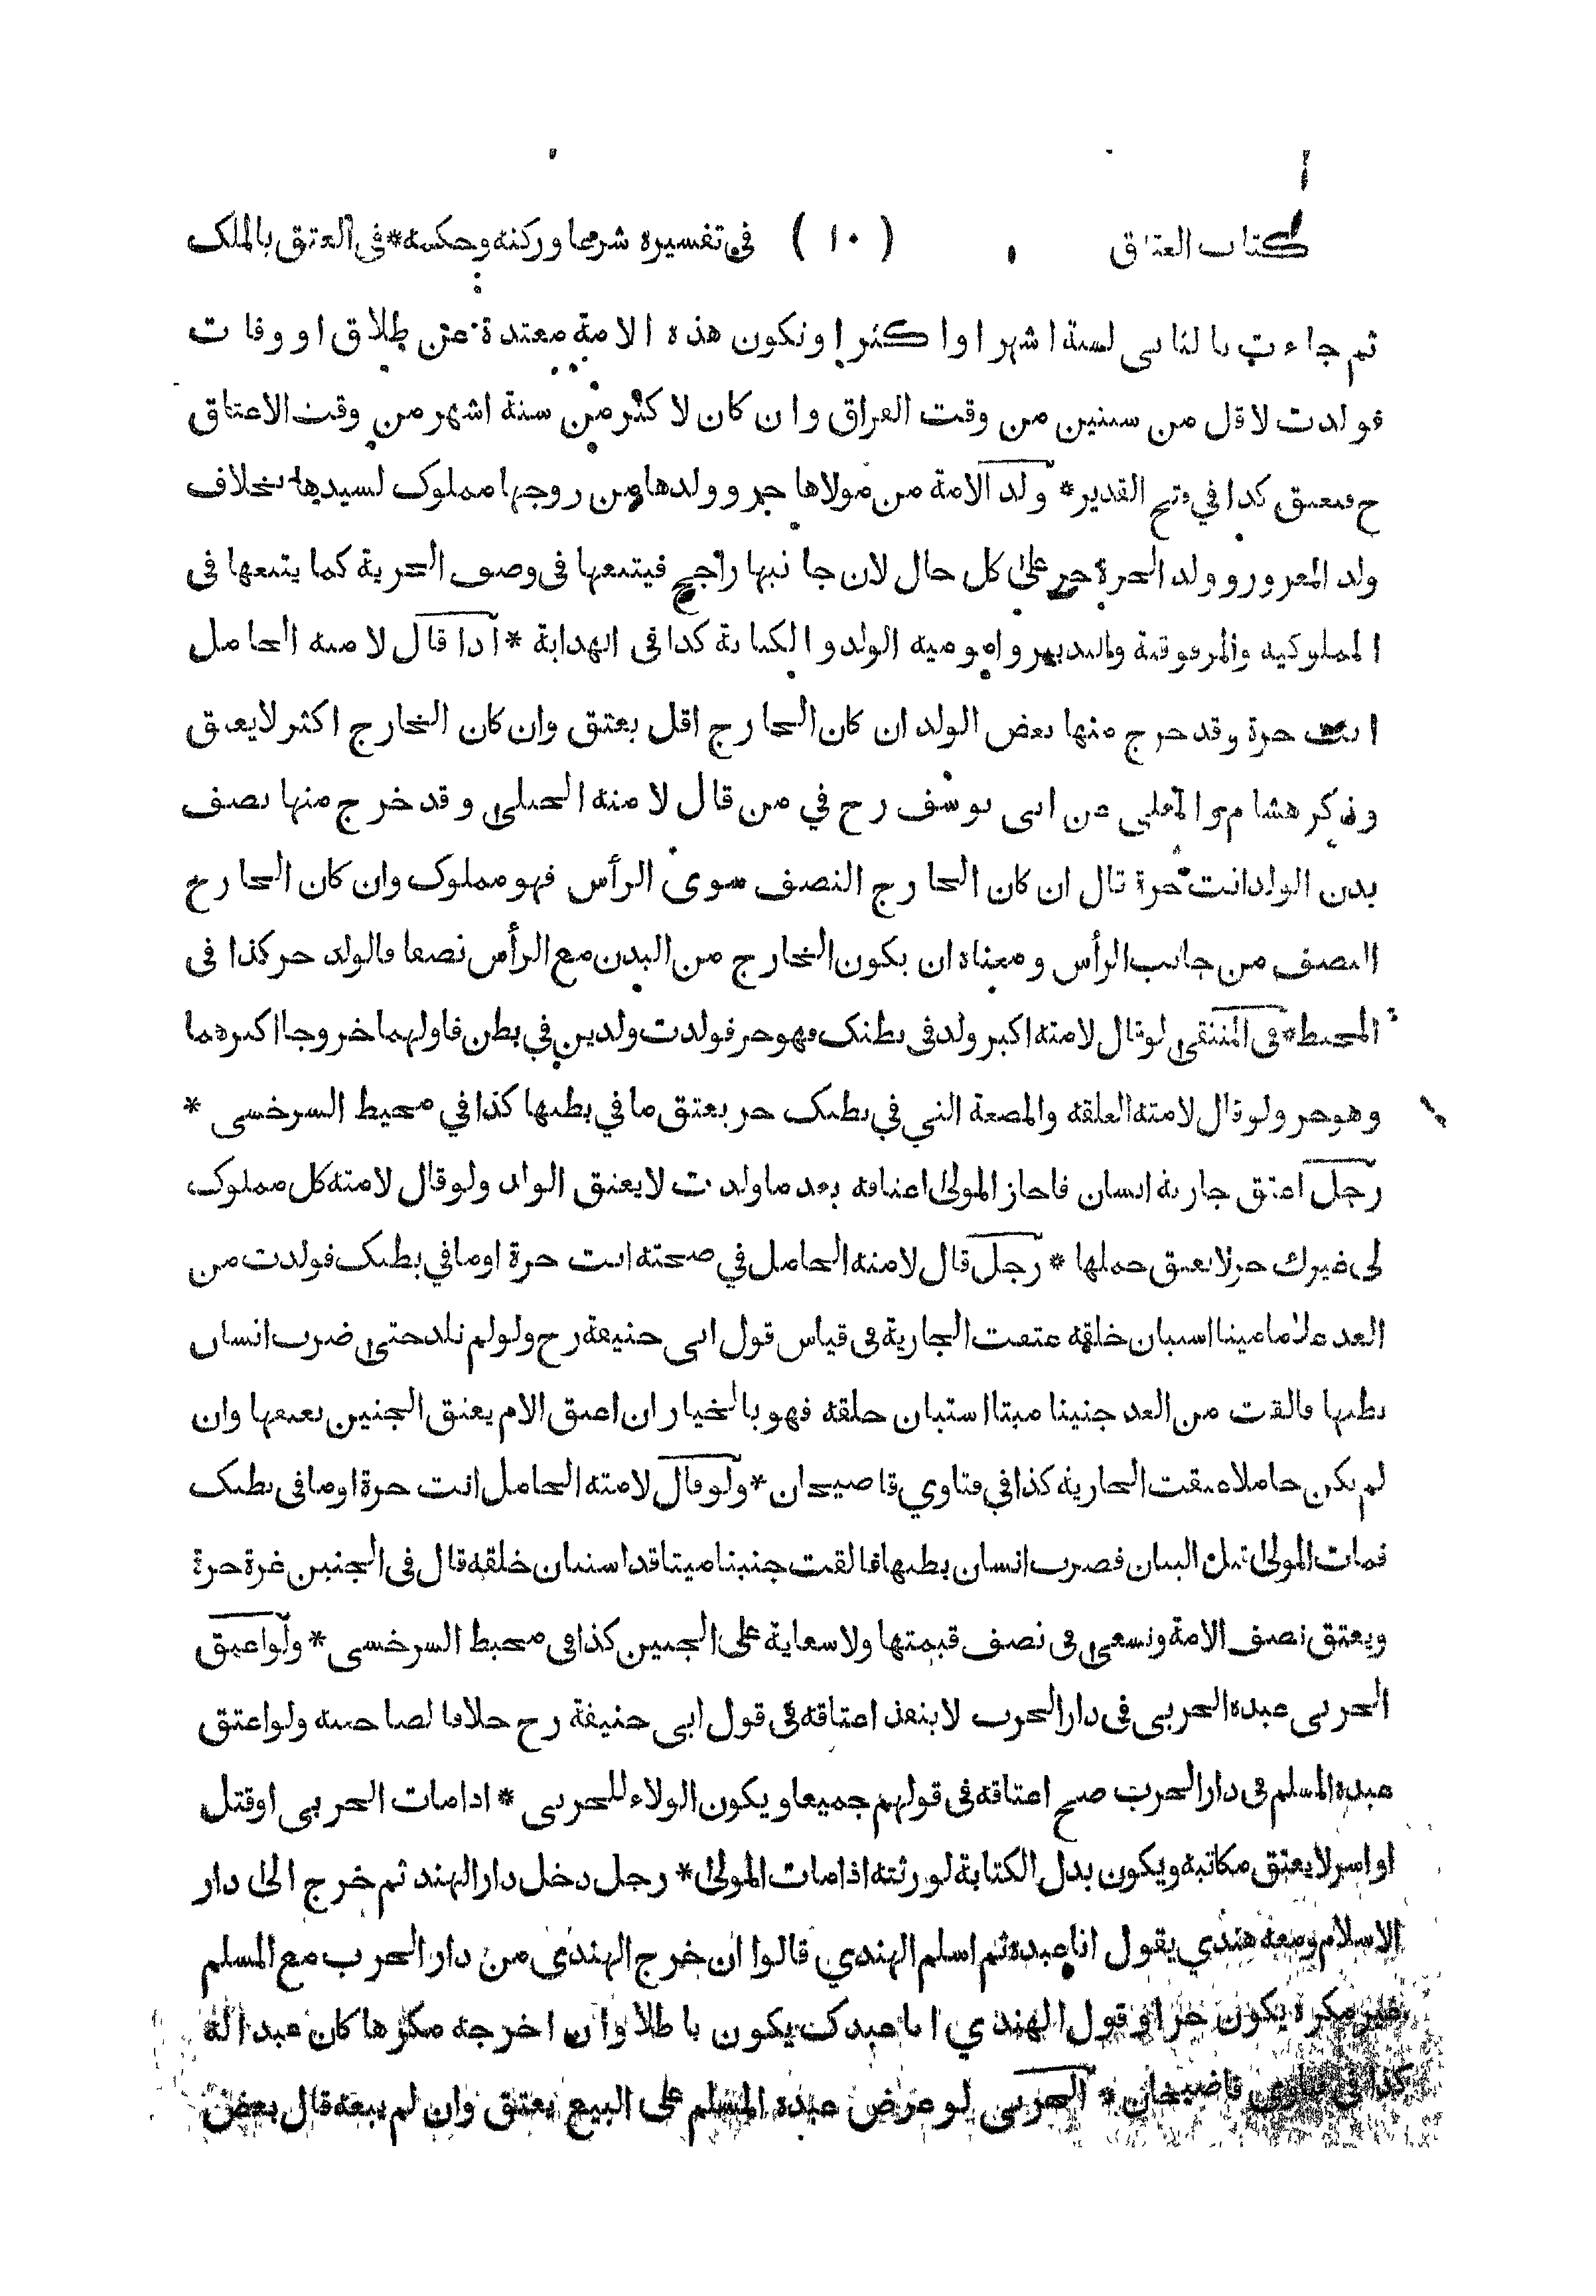 كتاب العتاق ( ١٠ ) في تفسيره شرعا وركنه وحكمه * في العتق بالملك
ثم جاءت بالثاني لستة اشهر او اكثر او تكون هذه الامة معتدة عن طلاق او وفات
فولدت لاقل من سنتين من وقت الفراق وان كان لاكثر من ستة اشهر من وقت الاعتاق
ح فيعتق كذا في فتح القدير * ولد الامة من مولاها حر وولدها من زوجها مملوك لسيدها بخلاف
ولد المغرور وولد الحرة حر على كل حال لان جانبها راجح فيتبعها في وصف الحرية كما يتبعها في
المملوكية والمرقوقية والتدبير واموميه الولد والكتابة كذا في الهداية * اذا قال لامته الحامل
انت حرة وقد خرج منها بعض الولد ان كان الخارج اقل يعتق وان كان الخارج اكثر لا يعتق
وذكر هشام والمعلى عن ابي يوسف رح في من قال لامته الحبلى وقد خرج منها نصف
بدن الولد انت حرة قال ان كان الخارج النصف سوى الرأس فهو مملوك وان كان الخارج
النصف من جانب الرأس ومعناه ان يكون الخارج من البدن مع الرأس نصفا فالولد حر كذا في
المحيط * في المنتقى لو قال لامته اكبر ولد في بطنك فهو حر فولدت ولدين في بطن فاولهما خروجا اكبرهما
وهو حر ولو قال لامته العلقه والمضعة التي في بطنك حر يعتق ما في بطنها كذا في محيط السرخسي *
رجل اعتق جارية انسان فاجاز المولى اعتاقه بعد ما ولدت لا يعتق الولد ولو قال لامته كل مملوك
لي غيرك حر لا يعتق حملها * رجل قال لامته الحامل في صحته انت حرة او ما في بطنك فولدت من
الغد غلاما ميتا استبان خلقه عتقت الجارية في قياس قول ابي حنيفة رح ولو لم تلد حتى ضرب انسان
بطنها فالقت من الغد جنينا ميتا استبان خلقه فهو بالخيار ان اعتق الام يعتق الجنين بعتقها وان
لم يكن حاملا عتقت الجارية كذا في فتاوي قاضيخان * ولو قال لامته الحامل انت حرة او ما في بطنك
فمات المولى قبل البيان فضرب انسان بطنها فالقت جنينا ميتا قد استبان خلقه قال في الجنين غرة حرة
ويعتق نصف الامة وتسعى في نصف قيمتها ولا سعاية على الجنين كذا في محيط السرخسي * ولو اعتق
الحربي عبده الحربي في دار الحرب لا ينفذ اعتاقه في قول ابي حنيفة رح خلافا لصاحبيه ولو اعتق
عبده المسلم في دار الحرب صح اعتاقه في قولهم جميعا ويكون الولاء للحربي * اذا مات الحربي او قتل
او اسر لا يعتق مكاتبه ويكون بدل الكتابة لورثته اذا مات المولى * رجل دخل دار الهند ثم خرج الى دار
الاسلام ومعه هندي يقول انا عبده ثم اسلم الهندي قالوا ان خرج الهندي من دار الحرب مع المسلم
غير مكره يكون حرا وقول الهندي انا عبدك يكون باطلا وان اخرجه مكرها كان عبدا له
كذا في فتاوي قاضيخان * الحربي لو عرض عبده المسلم على البيع يعتق وان لم يبعه قال بعض